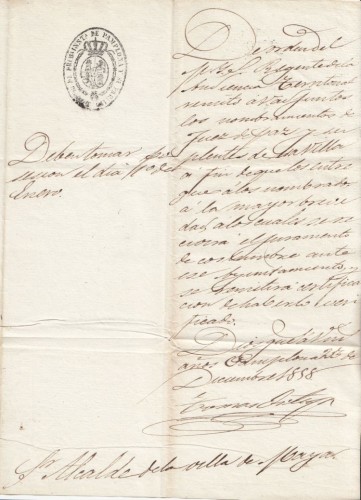 De orden del
Sr. Regente de la
Audiencia Territorial
remito a V. adjuntos
los nombramientos de
Juez de paz y su
plentes de la Villa
a fin de que los entre
gue á los nombrados
á la mayor breve
dad, á los cuales se re
civirá el juramento
de costumbre ante
ese Ayuntamiento, y
se remitirá certifica
cion de haberlo veri
ficado.
Dios gue á V. m.s
años Pamplona de
Diciembre 1858
Deben tomar po
sesion el dia 1º de
Enero.
Sr. Alcalde de la villa de Maya